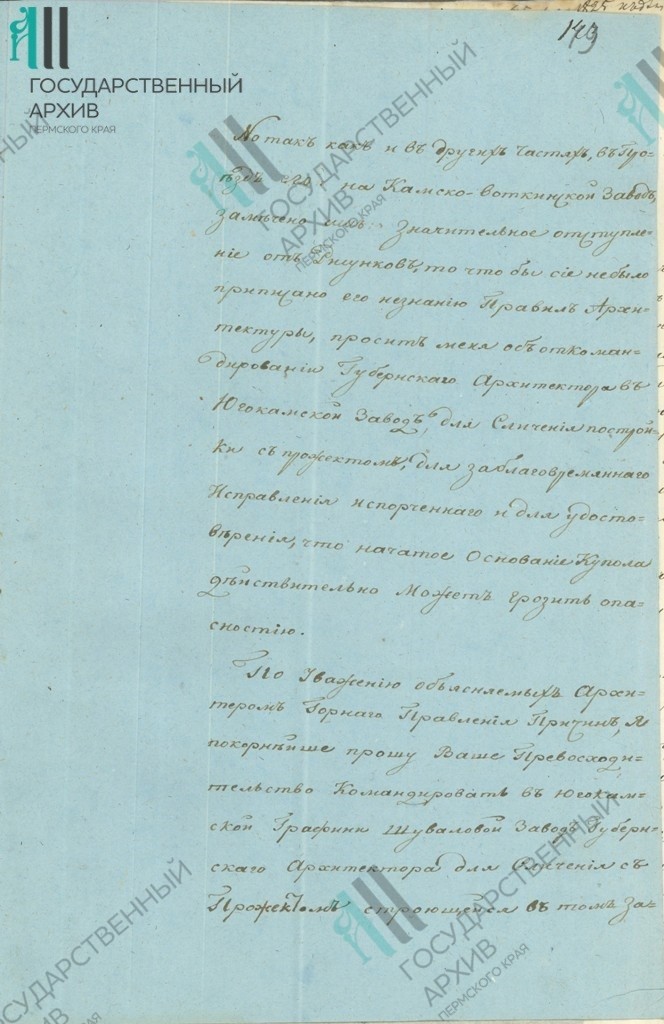 ГОСУДАРСТВЕННЫЙ
АРХИВ
ПЕРМСКОГО КРАЯ
143
Но такъ какъ и въ другихъ частяхъ, въ Про=
ѣздъ его, на Камско-воткинской Заводъ,
замѣчено имъ значительное отступле=
ніе отъ Рисунковъ, то что бы сіе небыло
приписано его незнанію Правилъ Архи=
тектуры, проситъ меня объ откоман=
дированіи Губернскаго Архитектора въ
Югокамской Заводъ, для Сличенія построй=
ки съ прожектомъ, для заблаговремяннаго
Исправленія испорченнаго и для удосто=
вѣренія, что начатое Основаніе Купола
дѣйствительно Можетъ грозить опа=
сностію.
По Уваженію объясняемыхъ Архи=
теромъ Горнаго Правленія Причинъ, Я
покорнѣйше прошу Ваше Превосходи=
тельство Командировать въ Югокам=
ской Графини Шуваловой Заводъ Губерн=
скаго Архитектора для Сличенія съ
Прожектомъ строющейся въ томъ За=